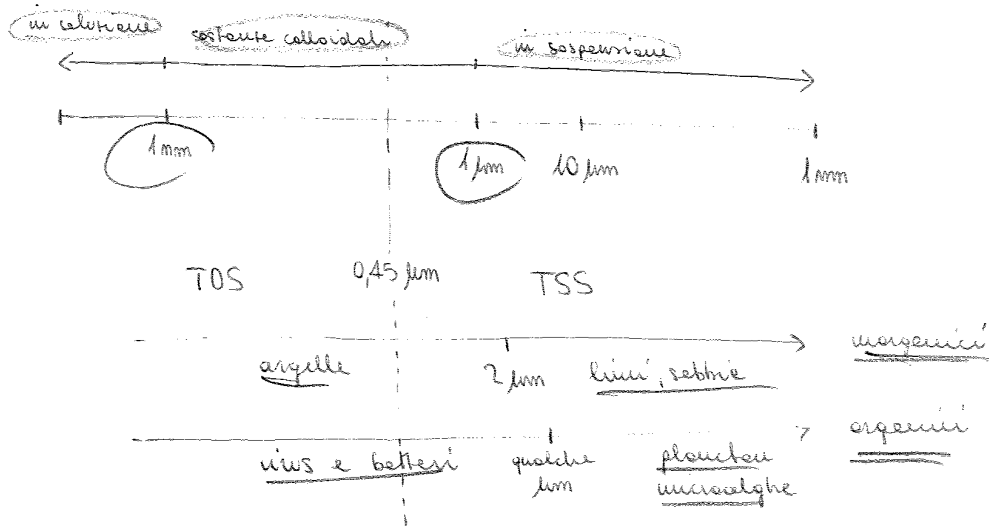 in soluzione sostanze colloidali in sospensione
1 nm 1 µm 10 µm 1 mm
TDS 0,45 µm TSS
argille 2 µm limi, sabbie inorganici
virus e batteri qualche µm plancton microalghe organici